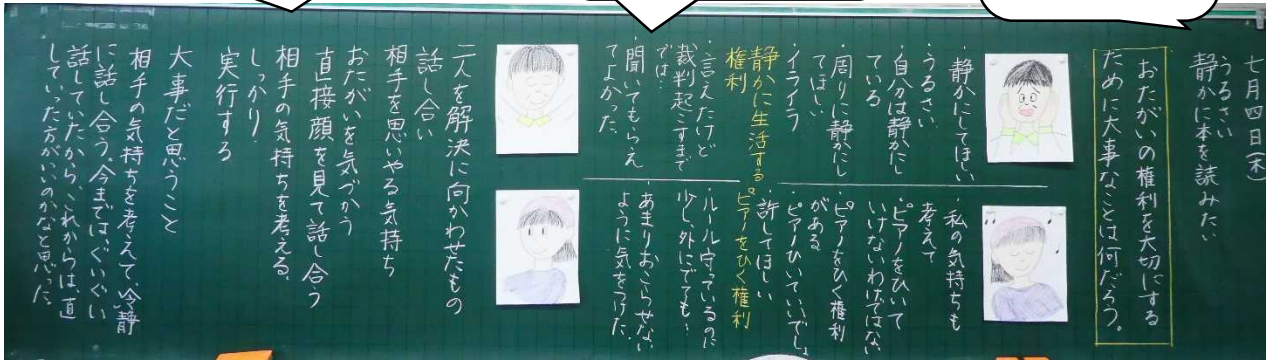 七月四日(木)
うるさい
静かに本を読みたい
おたがいの権利を大切にする
ために大事なことは何だろう。
・静かにしてほしい
・うるさい
・自分は静かにし
ている
・周りに静かにし
てほしい
・イライラ
静かに生活する
権利
・言えたけど
裁判起こすまで
では…
・聞いてもらえ
てよかった。
・私の気持ちも
考えて
・ピアノをひいて
いけないわけではない
・ピアノをひく権利
がある
ピアノひいていいでしょ
・許してほしい
ピアノをひく権利
・ルール守っているのに
少し、外にでても…
・あまりおこらせない
ように気をつけた。
二人を解決に向かわせたもの
話し合い
相手を思いやる気持ち
おたがいを気づかう
直接顔を見て話し合う
相手の気持ちを考える、
しっかり
実行する
大事だと思うこと
相手の気持ちを考えて冷静
に話し合う。今までは、ぐいぐい
話していたから、これからは、直
していった方がいいのかなと思った。